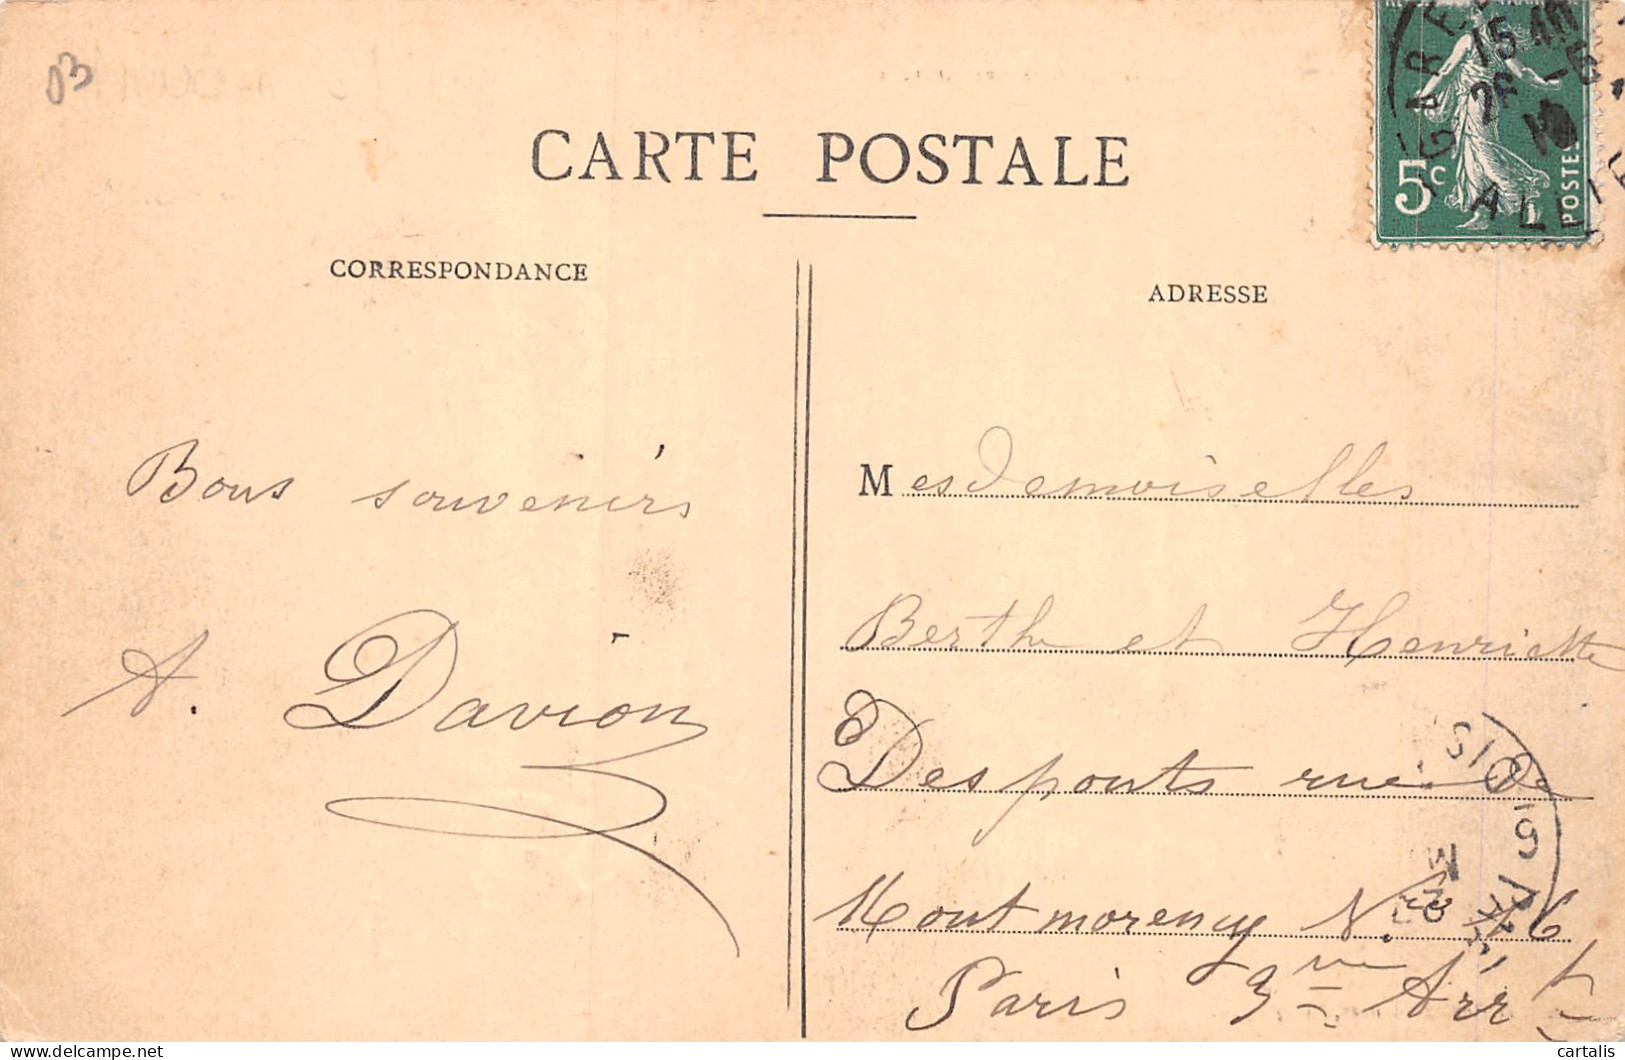 03
CARTE POSTALE
CORRESPONDANCE
ADRESSE
5c
POSTES
15 40
26
ALLIE
Bons souvenirs
A. Davion
Mesdemoiselles
Berthe et Henriette
Desponts rue de
Montmorency No 16
Paris 3me Arrt
delcampe.net
cartalis